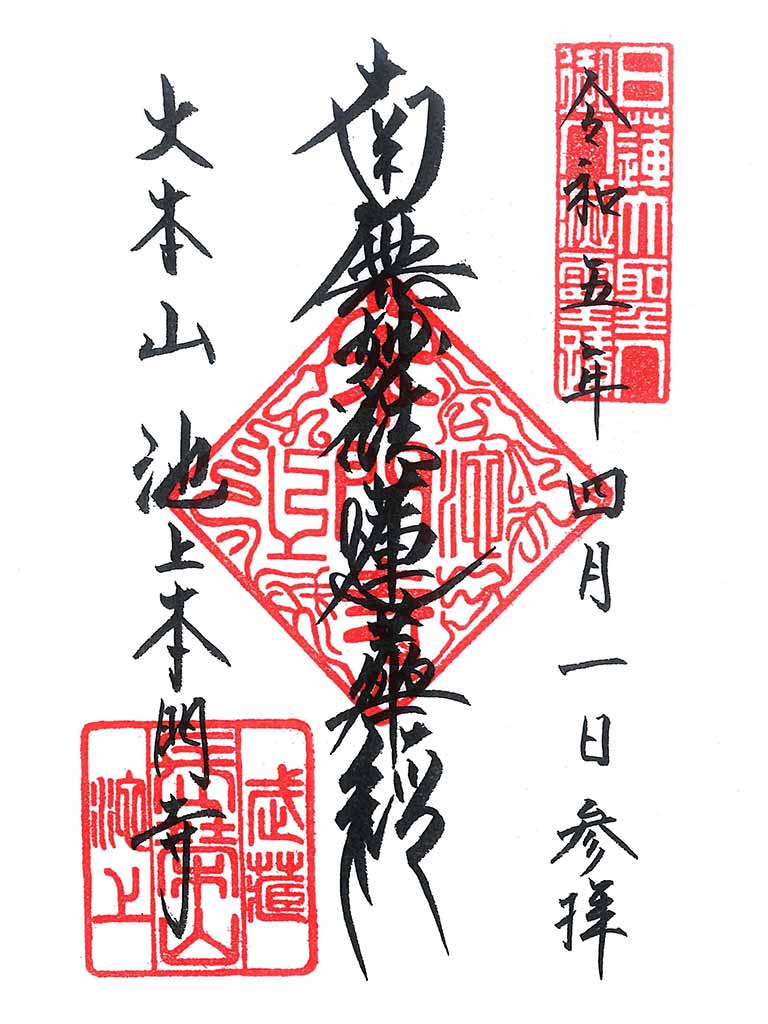 令和五年四月一日参拝
南無妙法蓮華経
大本山 池上本門寺
日蓮大聖人
御入滅霊跡
武蔵
池上